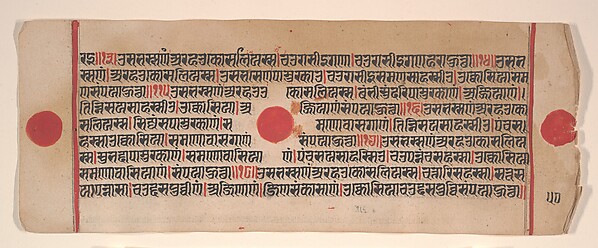 रइ॥१३॥उसभस्सणंअरहउकोसलियस्स।चउरासीइगणा।चउरासीइगणहराहोत्था॥१४॥उसभ
स्सणं।अरहउकोसलियस्स।उसभसेणपामुरकाउ।चउरासीइसमणसाहस्सीउ।उक्कोसियासम
णसंपयाहोत्था॥१५॥उसभस्सणंअरहउ कोसलियस्स।बंभीसुंदरिपामुरकाणं।अज्जियाणं।
तिन्निसयसाहस्सीउ।उक्कोसिया।अ ज्जियाणंसंपयाहोत्था॥१६॥उसभस्सणंअरहउको
सलियस्स।सिज्जंसपामुरकाणं।स मणोवासगाणं।तिन्निसयसाहस्सीउ।पंचस
हस्साउक्कोसिया।समणोवासगाणं संपयाहोत्था॥१७॥उसभस्सणंअरहउकोसलिय
स्स।सुभद्दापामुरकाणं।समणोवासिया णं।पंचसयसाहस्सिउ।चउपन्नंचसहस्सा।उक्कोसिया
समणोवासियाणं।संपयाहोत्था॥१८॥उसभस्सणंअरहउकोसलियस्स।चत्तारिसहस्सा।सत्तस
यापन्नासा।चउद्दसपुव्वीणं।अजिणाणं।जिणसंकासाणं।उक्कोसियाचउद्दसपुव्विसंपयाहोत्था॥